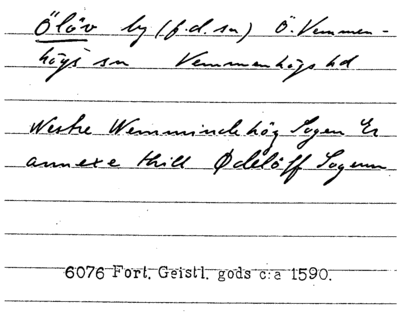 Ölöv by (f.d. sn) Ö. Vemmen-
högs sn Vemmenhögs hd
Westre Wemmindehög Sogen Er
annexe thill Ødeløff Sogenn
6076 Fort. Geistl. gods c:a 1590.